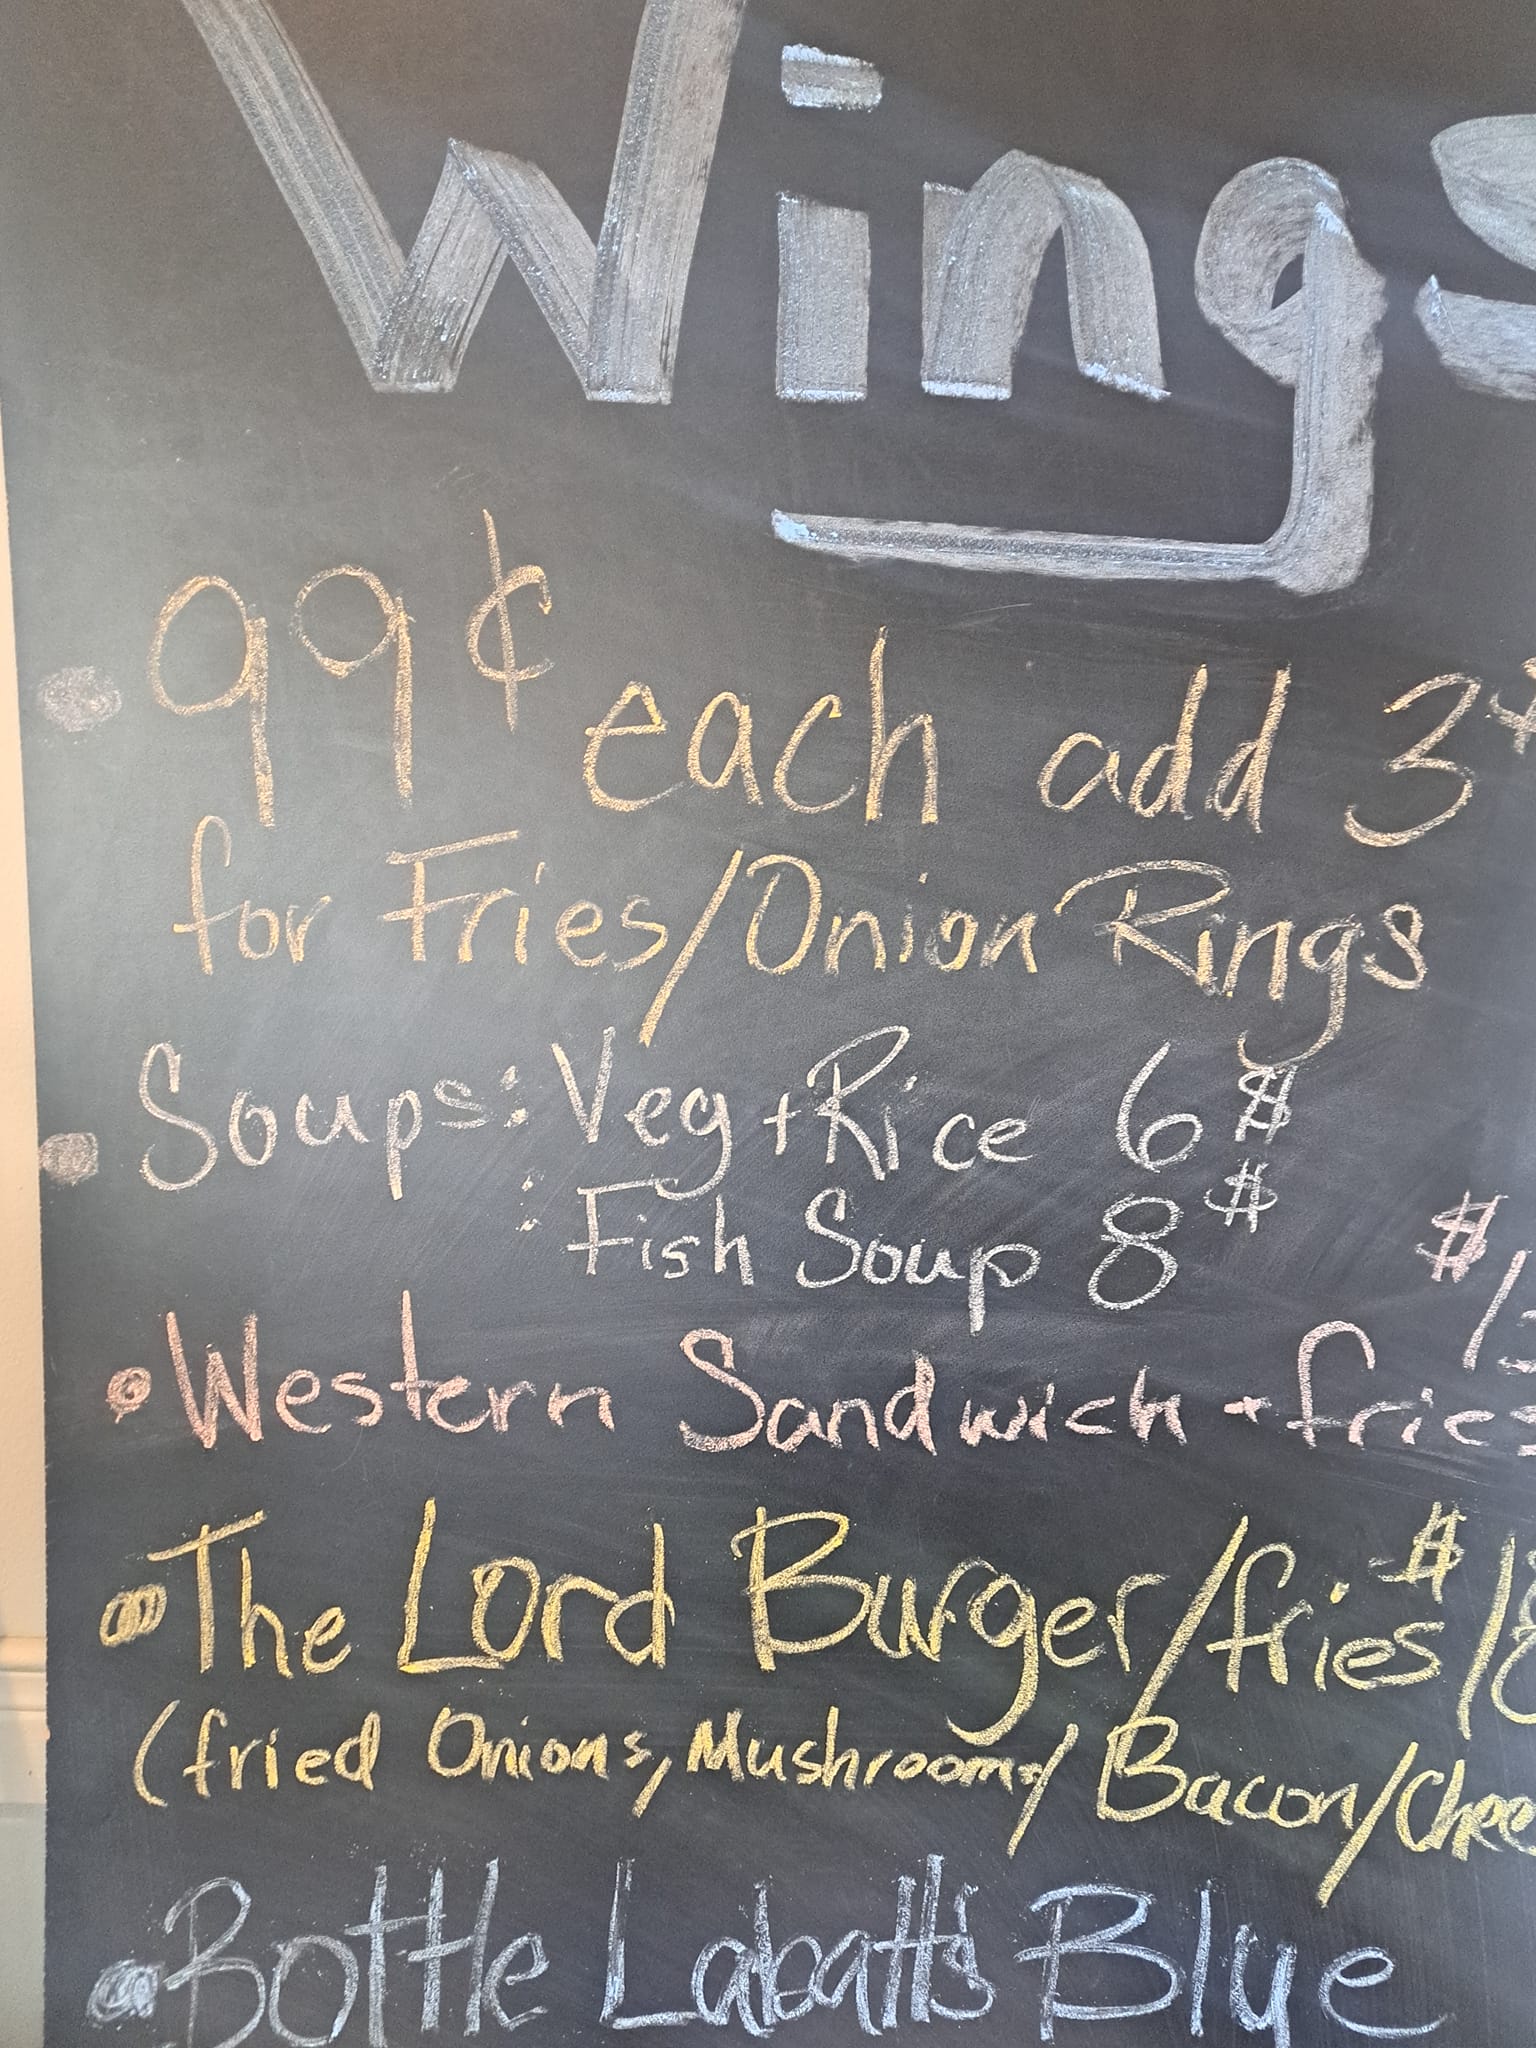 Wings
99¢ each add 3
for Fries/Onion Rings
Soups: Veg + Rice 6$
: Fish Soup 8$
Western Sandwich + fries $
The Lord Burger/fries $18
(fried Onions, Mushrooms/ Bacon/Chee
Bottle Labatt's Blue